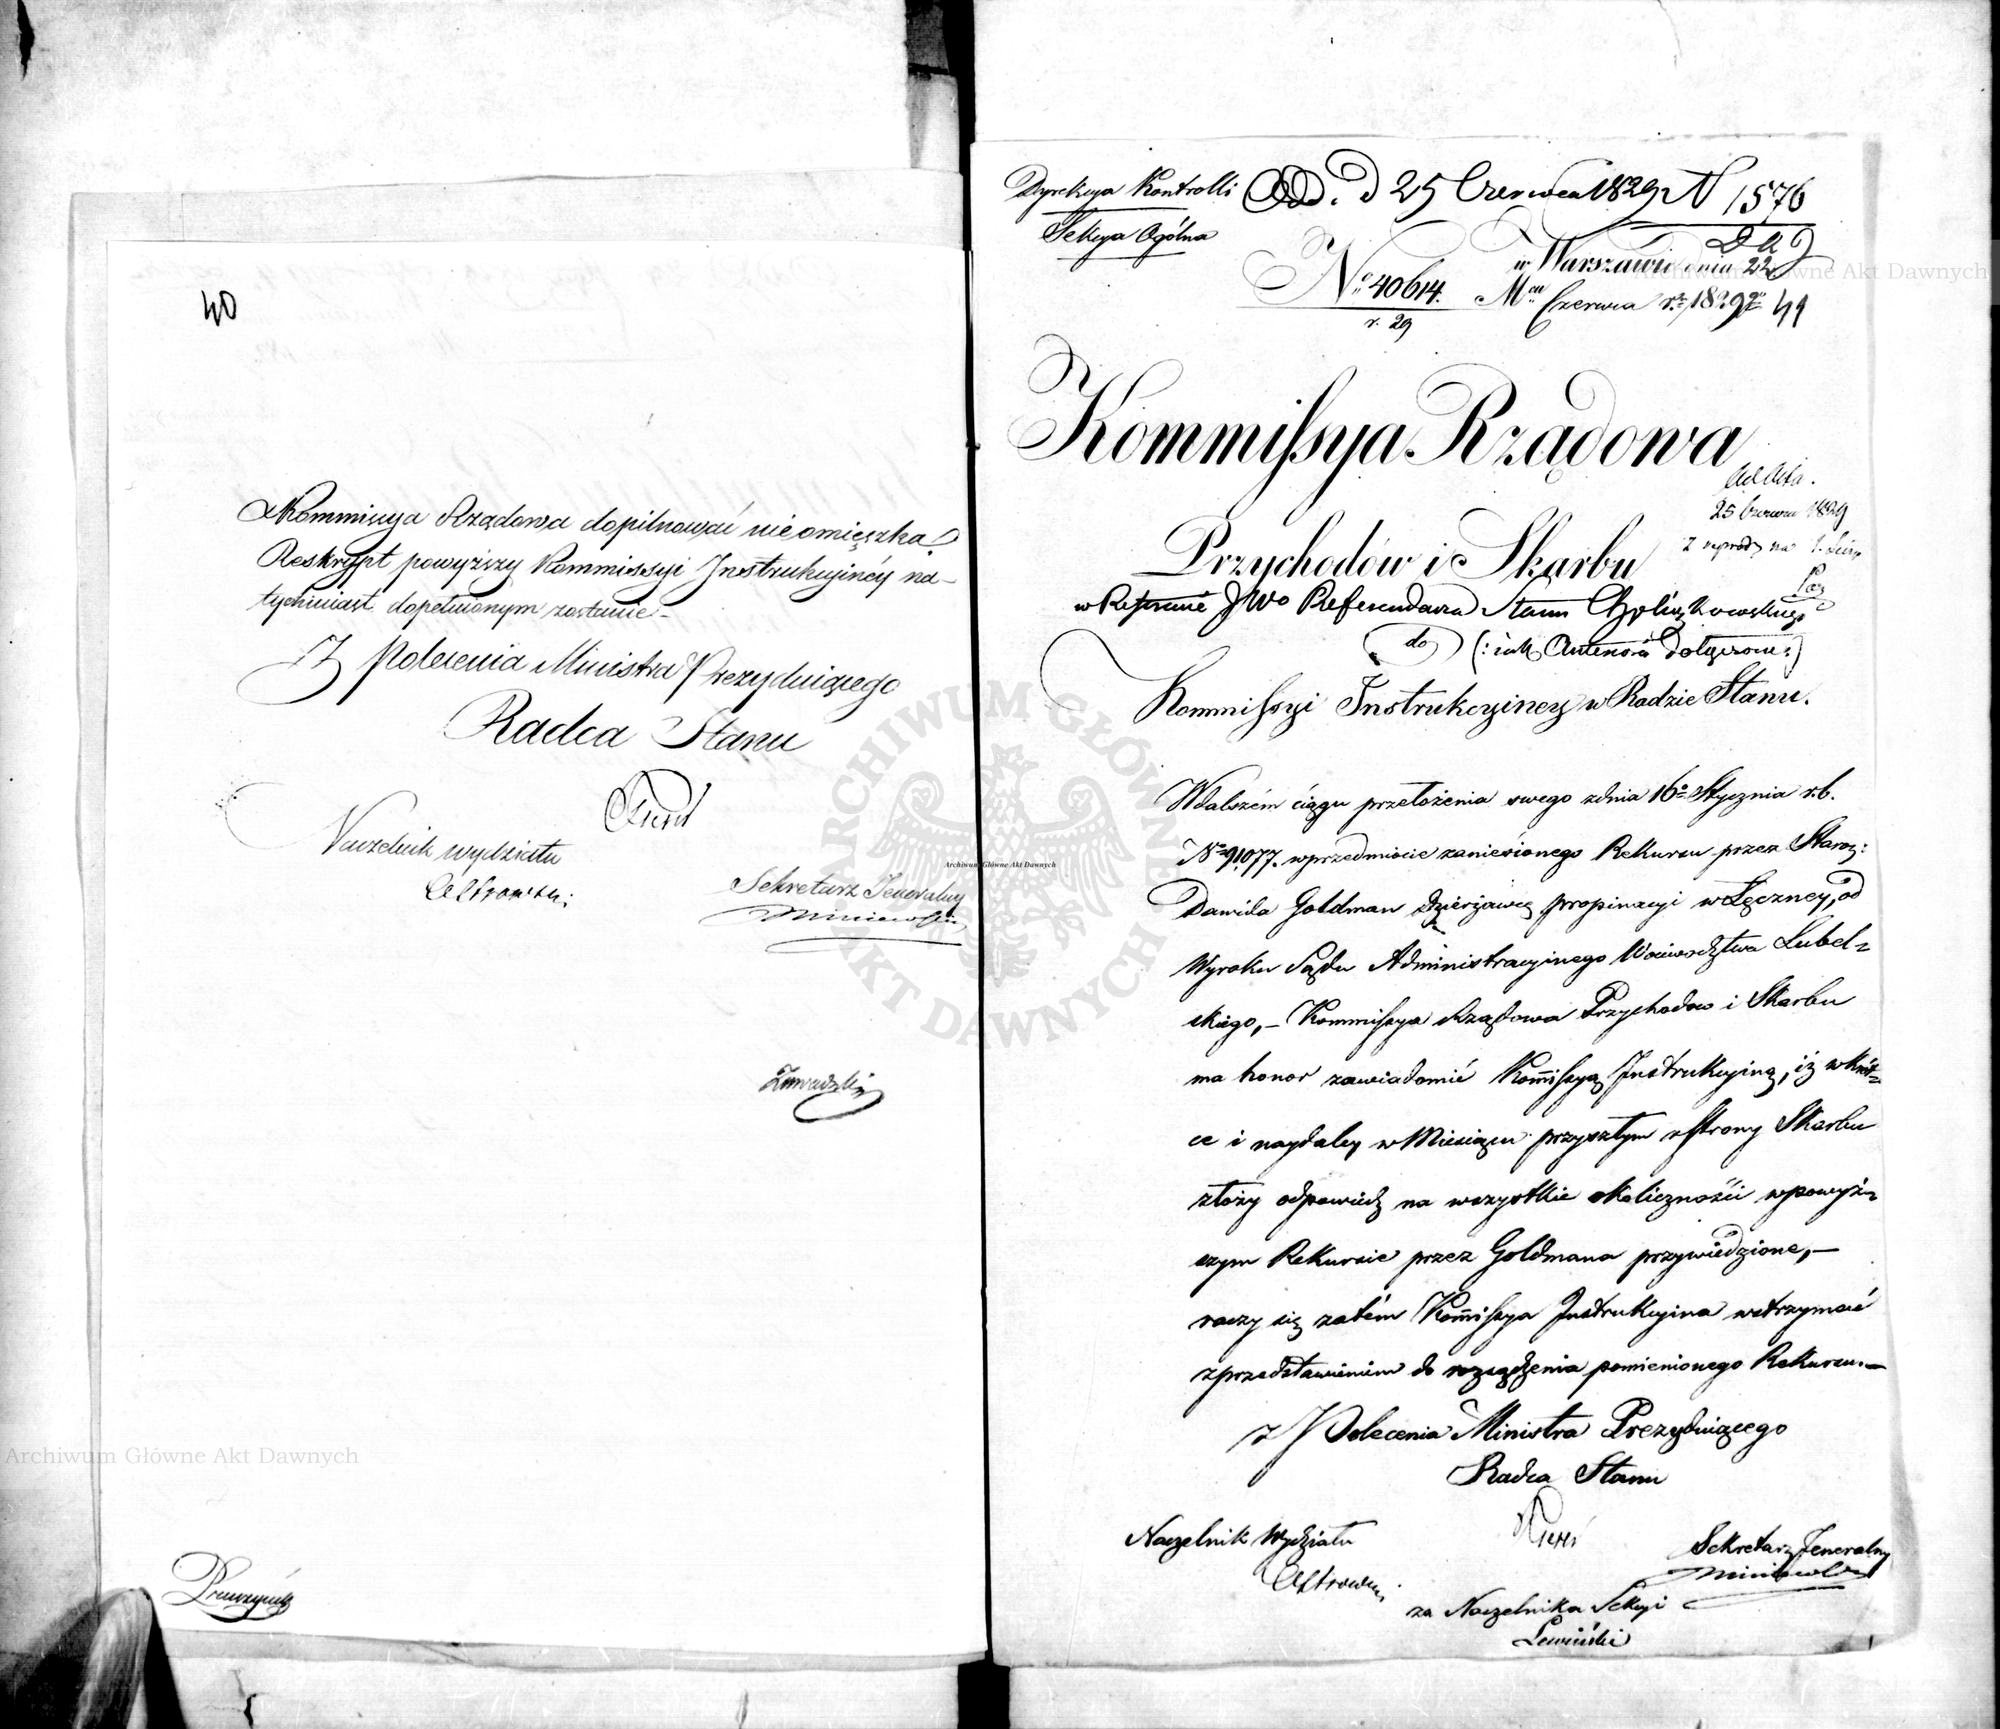 40
Kommissya Rządowa dopilnować nieomieszka
Reskrypt powyższy Kommissyi Instrukcyinéy na-
tychmiast dopełnionym zostanie.
Z polecenia Ministra Prezyduiącego
Radca Stanu
Naczelnik wydziału
Sekretarz Jeneralny
Zawadzki
Dyrekcya Kontrolli
Sekcya Ogólna
Odd. d 25 Czerwca 1829 N 1576
No 40614.
r. 29
w Warszawie dnia 22
Mca Czerwca r. 1829 go
41
Kommissya Rządowa
ad acta.
25 Czerwca 1829
Przychodów i Skarbu
w Referencie JWo Referendarza Stanu
do
Kommissyi Instrukcyiney w Radzie Stanu.
W dalszém ciągu przełożenia swego zdnia 16o Stycznia r.b.
No 91077. w przedmiocie zaniesionego Rekursu przez Staroz:
Dawida Goldman dzierżawcę propinacyi w Łęczney, od
Wyroku Sądu Administracyinego Woiewodztwa Lubel-
skiego, – Kommissya Rządowa Przychodow i Skarbu
ma honor zawiadomić Kommissyą Instrukcyiną, iż wkrót-
ce i naydaley w Miesiącu przyszłym z strony Skarbu
złoży odpowiedz na wszystkie okoliczności w powyż-
szym Rekursie przez Goldmana przywiedzione, –
raczy się zatém Kommissya Instrukcyina wstrzymać
z przedstawieniem do rozsądzenia pomienionego Rekursu. –
z Polecenia Ministra Prezyduiącego
Radca Stanu
Naczelnik Wydziału
Sekretarz Jeneralny
za Naczelnika Sekcyi
Lewiński
Archiwum Główne Akt Dawnych
Archiwum Główne Akt Dawnych
Archiwum Główne Akt Dawnych
ARCHIWUM GŁÓWNE AKT DAWNYCH